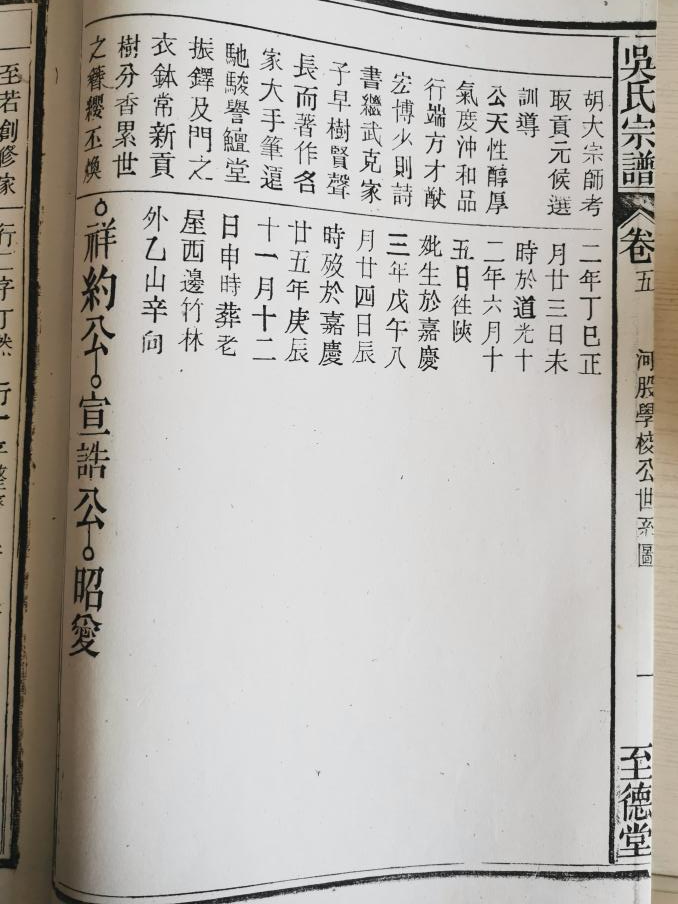 吳氏宗譜
卷五
河股學校公世系圖
一
至德堂
胡大宗師考
取貢元候選
訓導
公天性醇厚
氣度沖和品
行端方才猷
宏博少則詩
書繼武克家
子早樹賢聲
長而著作名
家大手筆逗
馳駿譽鱣堂
振鐸及門之
衣鉢常新貢
樹分香累世
之簪纓丕煥
二年丁巳正
月廿三日未
時於道光十
二年六月十
五日往陝
妣生於嘉慶
三年戊午八
月廿四日辰
時歿於嘉慶
廿五年庚辰
十一月十二
日申時葬老
屋西邊竹林
外乙山辛向
祥約公宣誥公昭愛
至若創修家